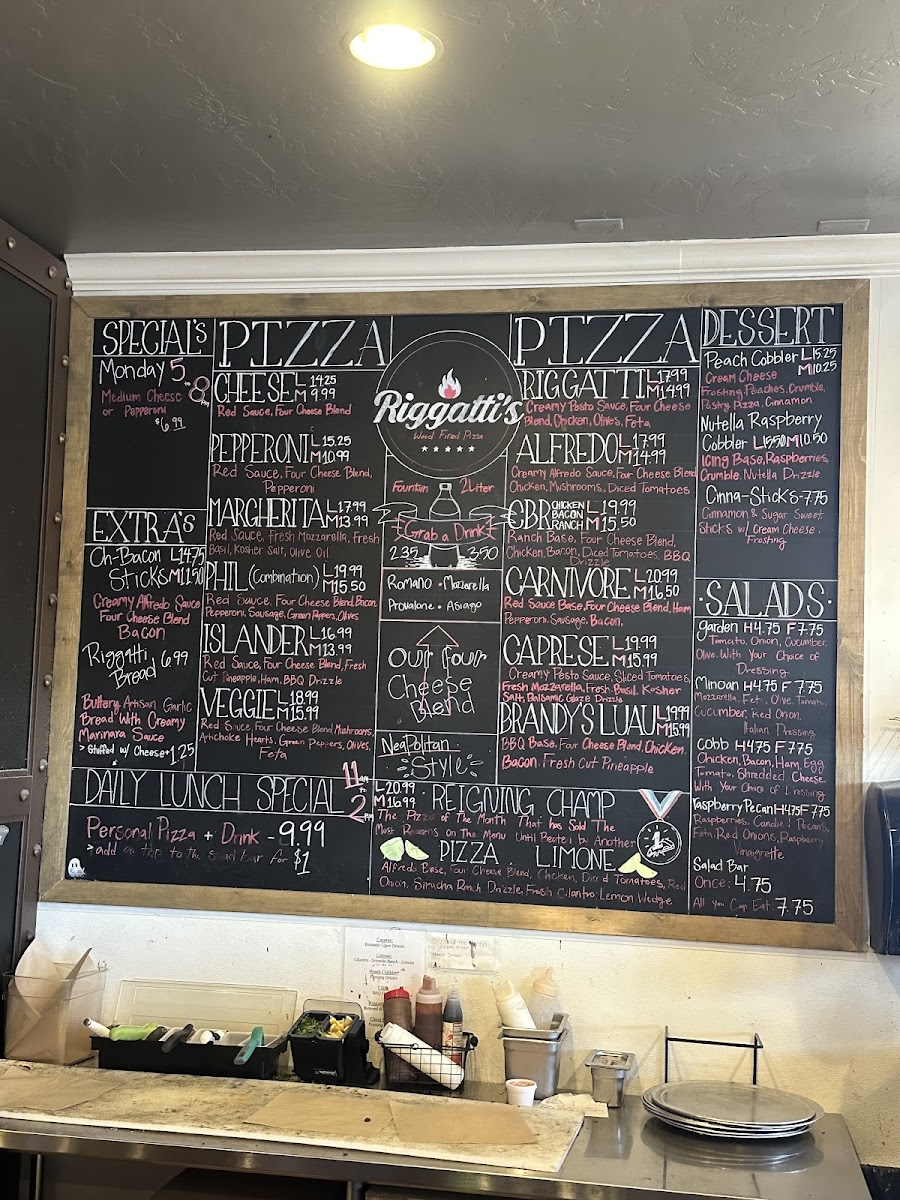 SPECIAL'S
Monday 5 to 8 pm
Medium Cheese
or Pepperoni
$6.99
EXTRA'S
Ch-Bacon L 14.75
Sticks M 11.50
Creamy Alfredo Sauce
Four Cheese Blend
Bacon
Riggatti 6.99
Bread
Buttery Artisan Garlic
Bread With Creamy
Marinara Sauce
> Stuffed w/ Cheese + 1.25
PIZZA
CHEESE L 14.25
M 9.99
Red Sauce, Four Cheese Blend
PEPPERONI L 15.25
M 10.99
Red Sauce, Four Cheese Blend,
Pepperoni
MARGHERITA L 17.99
M 13.99
Red Sauce, Fresh Mozzarella, Fresh
Basil, Kosher Salt, Olive Oil
PHIL (Combination) L 19.99
M 15.50
Red Sauce, Four Cheese Blend, Bacon
Pepperoni, Sausage, Green Peppers, Olives
ISLANDER L 16.99
M 13.99
Red Sauce, Four Cheese Blend, Fresh
Cut Pineapple, Ham, BBQ Drizzle
VEGGIE L 18.99
M 15.99
Red Sauce, Four Cheese Blend, Mushrooms,
Artichoke Hearts, Green Peppers, Olives,
Feta
Riggatti's
Wood Fired Pizza
Fountin 2 Liter
Grab a Drink
2.35 3.50
Romano • Mozzarella
Provalone • Asiago
Our four
Cheese
Blend
Neapolitan
Style
PIZZA
RIGGATTI L 17.99
M 14.99
Creamy Pesto Sauce, Four Cheese
Blend, Chicken, Olives, Feta
ALFREDO L 17.99
M 14.99
Creamy Alfredo Sauce, Four Cheese Blend
Chicken, Mushrooms, Diced Tomatoes
CBR CHICKEN BACON RANCH L 19.99
M 15.50
Ranch Base, Four Cheese Blend,
Chicken, Bacon, Diced Tomatoes, BBQ
Drizzle
CARNIVORE L 20.99
M 16.50
Red Sauce Base, Four Cheese Blend, Ham
Pepperoni, Sausage, Bacon,
CAPRESE L 19.99
M 15.99
Creamy Pesto Sauce, Sliced Tomatoes,
Fresh Mozzarella, Fresh Basil, Kosher
Salt, Balsamic Glaze Drizzle
BRANDY'S LUAU L 19.99
M 15.99
BBQ Base, Four Cheese Blend, Chicken,
Bacon, Fresh Cut Pineapple
DESSERT
Peach Cobbler L 15.25
M 10.25
Cream Cheese
Frosting, Peaches, Crumble,
Pastry Pizza, Cinnamon
Nutella Raspberry
Cobbler L 15.50 M 10.50
Icing Base, Raspberries,
Crumble, Nutella Drizzle
Cinna-Sticks - 7.75
Cinnamon & Sugar Sweet
Sticks w/ Cream Cheese
Frosting
·SALADS·
Garden H 4.75 F 7.75
Tomato, Onion, Cucumber,
Olive, With Your Choice of
Dressing
Minoan H 4.75 F 7.75
Mozzarella, Feta, Olive, Tomato,
Cucumber, Red Onion,
Italian Dressing
Cobb H 4.75 F 7.75
Chicken, Bacon, Ham, Egg
Tomato, Shredded Cheese
With Your Choice of Dressing
Raspberry Pecan H 4.75 F 7.75
Raspberries, Candied Pecans,
Feta, Red Onions, Raspberry
Vinaigrette
Salad Bar
Once: 4.75
All You Can Eat: 7.75
DAILY LUNCH SPECIAL 11 am to 2 pm
Personal Pizza + Drink - 9.99
> add on trip to the salad bar for $1
L 20.99
M 16.99 · REIGNING CHAMP
The Pizza of The Month That has Sold The
Most Remains on The Menu Until Beaten by Another
PIZZA . LIMONE
Alfredo Base, Four Cheese Blend, Chicken, Diced Tomatoes, Red
Onion, Siracha Ranch Drizzle, Fresh Cilantro, Lemon Wedge